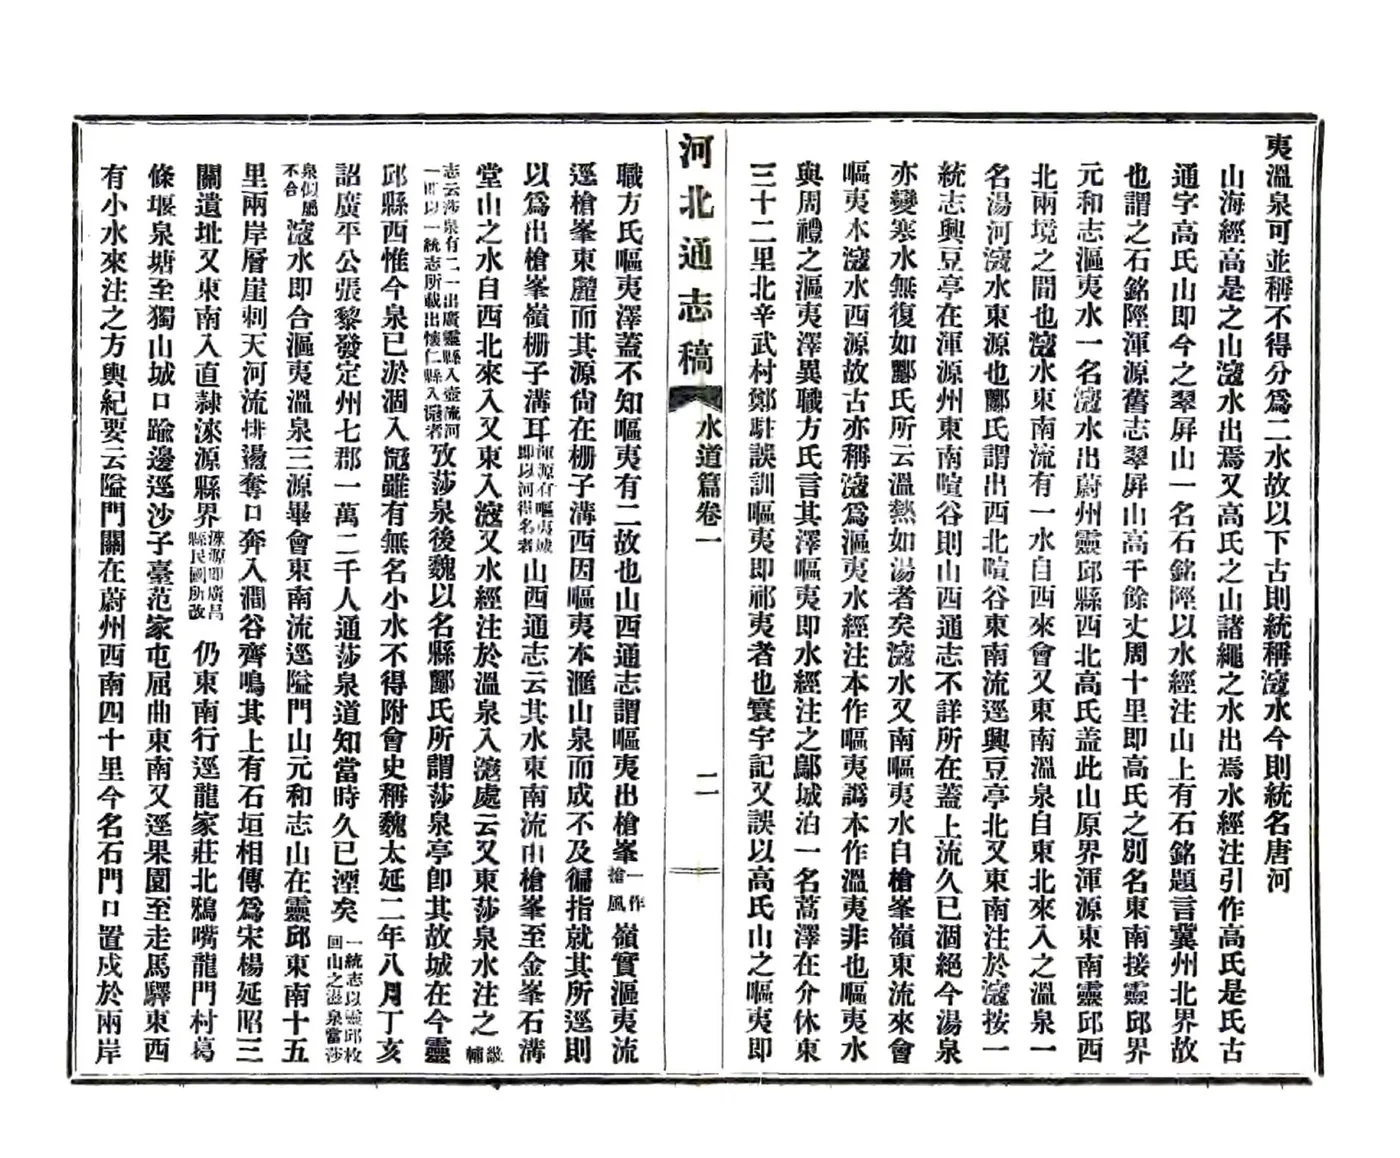 夷溫泉可並稱不得分爲二水故以下古則統稱滱水今則統名唐河
山海經高是之山滱水出焉又高氏之山諸繩之水出焉水經注引作高氏是氏古
通字高氏山即今之翠屏山一名石銘陘以水經注山上有石銘題言冀州北界故
也謂之石銘陘渾源舊志翠屏山高千餘丈周十里即高氏之別名東南接靈邱界
元和志漚夷水一名滱水出蔚州靈邱縣西北高氏蓋此山原界渾源東南靈邱西
北兩境之間也滱水東南流有一水自西來會又東南溫泉自東北來入之溫泉一
名湯河滱水東源也酈氏謂出西北暄谷東南流逕興豆亭北又東南注於滱按一
統志興豆亭在渾源州東南暄谷則山西通志不詳所在蓋上流久已涸絕今湯泉
亦變寒水無復如酈氏所云溫熱如湯者矣滱水又南嘔夷水自槍峯嶺東流來會
嘔夷本滱水西源故古亦稱滱爲漚夷水經注本作嘔夷譌本作溫夷非也嘔夷水
與周禮之漚夷澤異職方氏言其澤嘔夷即水經注之鄔城泊一名蒿澤在介休東
三十二里北辛武村鄭駐誤訓嘔夷即祁夷者也寰宇記又誤以高氏山之嘔夷即
河北通志稿
水道篇卷一
二
職方氏嘔夷澤蓋不知嘔夷有二故也山西通志謂嘔夷出槍峯一作搶風嶺實漚夷流
逕槍峯東麓而其源尙在栅子溝西因嘔夷本滙山泉而成不及徧指就其所逕則
以爲出槍峯嶺栅子溝耳渾源有嘔夷城即以河得名者山西通志云其水東南流由槍峯至金峯石溝
堂山之水自西北來入又東入滱又水經注於溫泉入滱處云又東莎泉水注之畿輔
志云莎泉有二一出廣靈縣入壺流河一即以一統志所載出懷仁縣入滱者攷莎泉後魏以名縣酈氏所謂莎泉亭卽其故城在今靈
邱縣西惟今泉已淤涸入滱雖有無名小水不得附會史稱魏太延二年八月丁亥
詔廣平公張黎發定州七郡一萬二千人通莎泉道知當時久已湮矣一統志以靈邱枚回山之滋泉當莎
泉似屬不合滱水即合漚夷溫泉三源畢會東南流逕隘門山元和志山在靈邱東南十五
里兩岸層崖刺天河流排盪奪口奔入澗谷齊鳴其上有石垣相傳爲宋楊延昭三
關遺址又東南入直隸淶源縣界淶源即廣昌縣民國所改仍東南行逕龍家莊北鴉嘴龍門村葛
條堰泉塘至獨山城口踰邊逕沙子臺范家屯屈曲東南又逕果園至走馬驛東西
有小水來注之方輿紀要云隘門關在蔚州西南四十里今名石門口置戍於兩岸